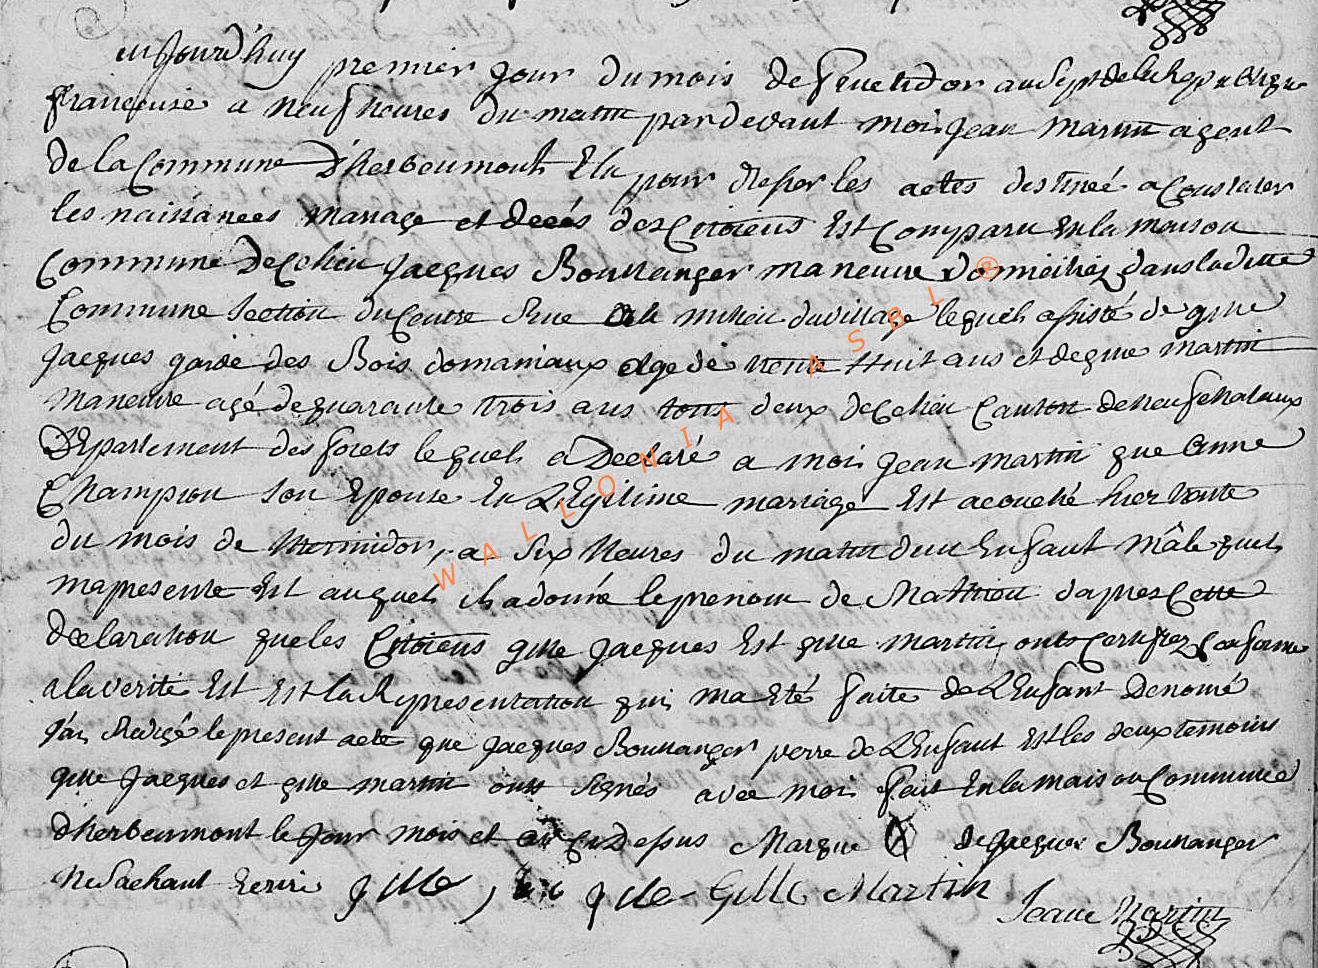 aujourd'huy premier jour du mois de fructidor an sept de la Republique
francoise a neuf heures du matin par devant moi jean martin agent
de la Commune D'herbeumont Elu pour dresser les actes destineé a Constater
les naissances mariage et decés des Citoiens Est Comparu En la maison
Commune De Ce lieu jacques Boullanger maneuvre domiciliez dans laditte
Commune section du Centre Rue de milieu du village lequel assisté de gille
jacques garde des Bois domaniaux age de trente Huit ans et de gille martin
maneuvre agé de quarante trois ans tous deux de Ce lieu Canton de neufchataux
Departement des forets lequel a Declaré a moi jean martin que anne
Champion son Epouse En LEgitime mariage Est acouché hier trente
du mois de thermidor, a six heures du matin dun Enfant mâle quil
ma presenté Est auquel il a donné le prenom de Mathieu dapres Cette
declaration que les Citoiens gille jacques Est gille martin, ont Certifiez Conforme
a la verité Est Est la Representation qui ma Eté faite de LEnfant Denomé
jai Redigé le present acte que jacques Boullanger perre de LEnfant Est les deux temoins
gille jacques et gille martin ont signés avec moi fait En la maison Commune
dherbeumont le jour mois et an Ci Desus Marque X de jacques Boullanger
Ne sachant Ecrire gille, gille Gille Martin
Jean Martin
WALLONIA ASBL ®